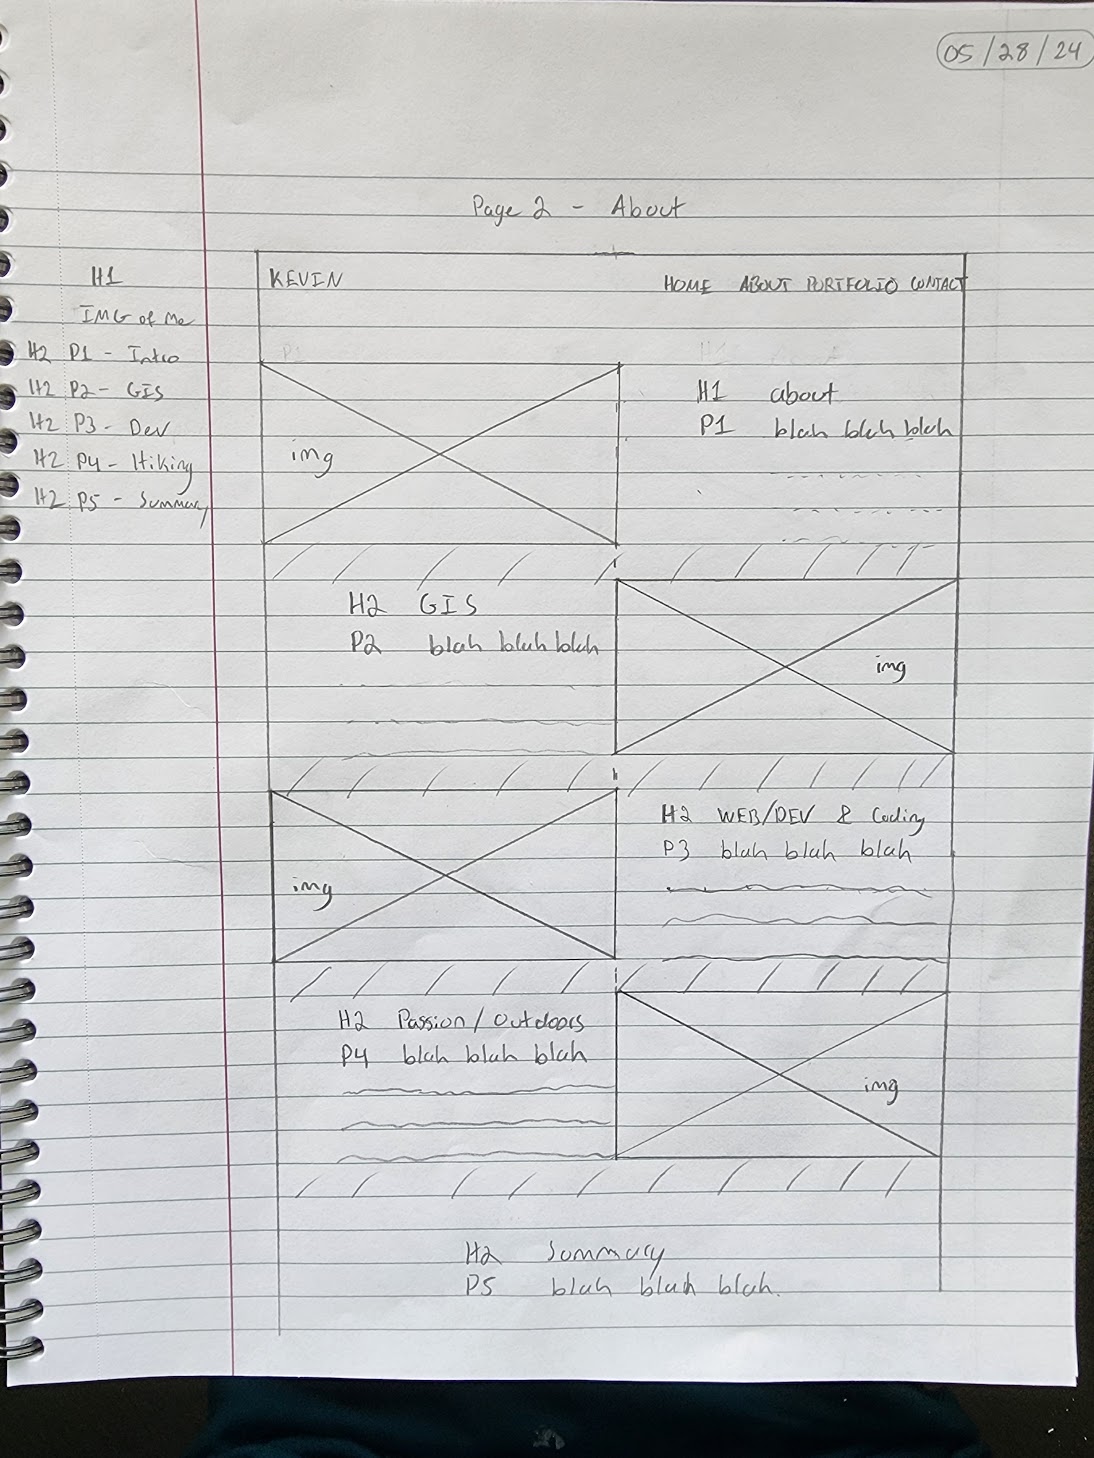 05/28/24
Page 2 - About
H1
IMG of Me
H2 P1 - Intro
H2 P2 - GIS
H2 P3 - Dev
H2 P4 - Hiking
H2 P5 - Summary
KEVIN HOME ABOUT PORTFOLIO CONTACT
P1
img
H1 about
P1 blah blah blah
H2 GIS
P2 blah blah blah
img
img
H2 WEB/DEV & Coding
P3 blah blah blah
H2 Passion/Outdoors
P4 blah blah blah
img
H2 Summary
P5 blah blah blah.